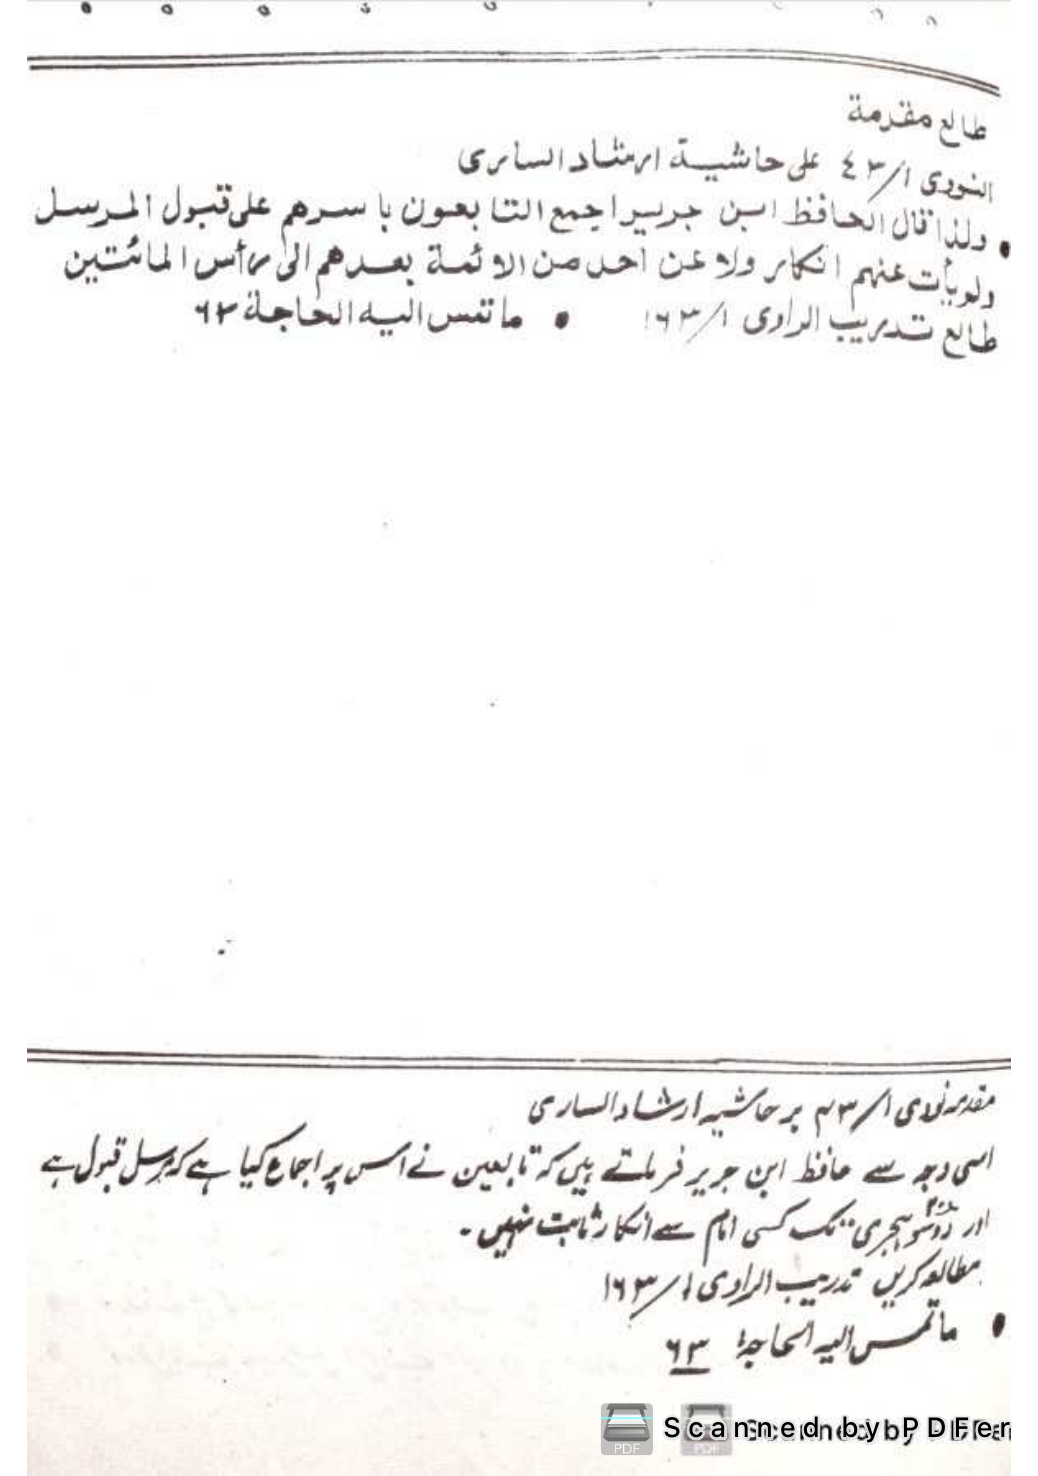 طالع مقدمة
النووى ١/٤٣ على حاشية ارشاد السارى
• ولذا قال الحافظ ابن جرير اجمع التابعون باسرهم على قبول المرسل
ولم يأت عنهم انكار ولا عن احد من الائمة بعدهم الى رأس المائتين
طالع تدريب الراوى ١/١٦٣ • ما تمس اليه الحاجة ٦٣
مقدمہ نووی ١/٤٣ بر حاشیہ ارشاد الساری
اسی وجہ سے حافظ ابن جریر فرماتے ہیں کہ تابعین نے اس پر اجماع کیا ہے کہ مرسل قبول ہے
اور دوسو ہجری ٢٠٠ھ تک کسی امام سے انکار ثابت نہیں۔
مطالعہ کریں تدریب الراوی ١/١٦٣
• ما تمس الیہ الحاجۃ ٦٣
Scanned by PDFer
Scanned by PDFer
PDF
PDF